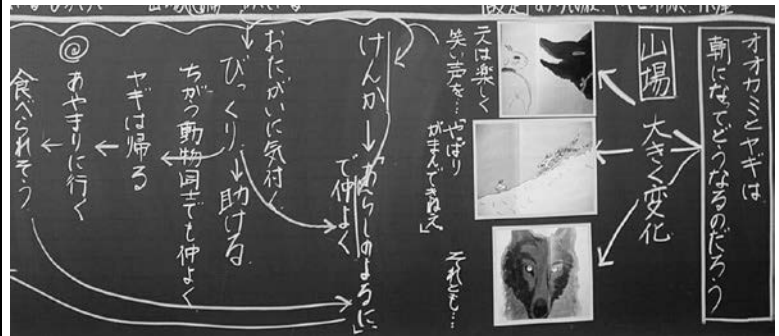 オオカミとヤギは
朝になってどうなるのだろう
山場
大きく変化
二人は楽しく
笑い声を…
「やっぱり
がまんできねえ」
それとも…
けんか→「あらしのよるに」
で仲よく
おたがいに気付く
びっくり→助ける
ちがう動物同士でも仲よく
ヤギは帰る
あやまりに行く
食べられそう